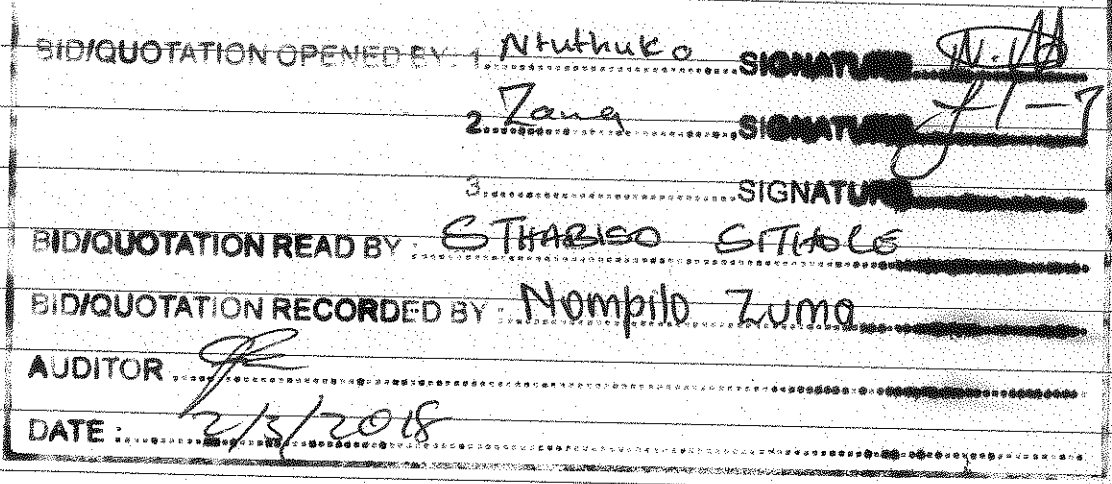 BID/QUOTATION OPENED BY : 1. Ntuthuko SIGNATURE
2. Zama SIGNATURE
3. SIGNATURE
BID/QUOTATION READ BY : STHABISO SITHOLE
BID/QUOTATION RECORDED BY : Nompilo Zuma
AUDITOR
DATE : 2/3/2018